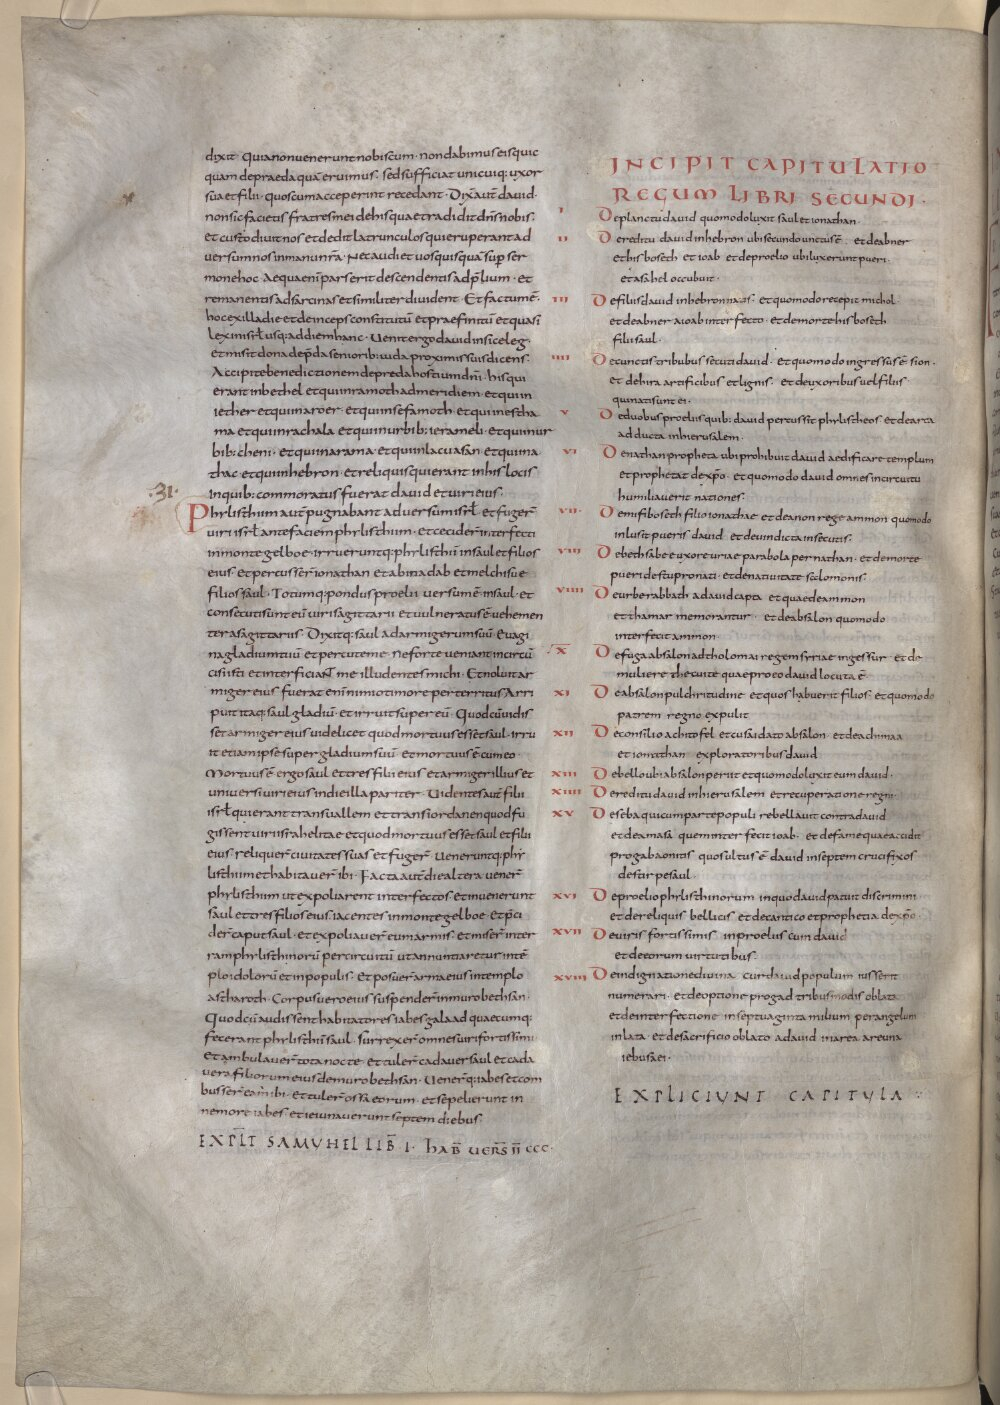 dixit· Quia non venerunt nobiscum· non dabimus eis quic
quam de praeda quā eruimus· sed sufficiat unicuiq; uxor
sua et filii· quos cum acceperint recedant· Dix̄ aut̄ david·
non sic facietis fratres mei de his quae tradidit dn̄s nobis·
et custodivit nos et dedit latrunculos qui eruperant ad
versum nos in manu nr̄a· Nec audiet vos quisquā sup̄ ser
mone hoc· Aequa enī pars erit descendentis ad p̄lium· et
remanentis ad sarcinas et similiter divident· Et factum ē·
hoc ex illa die et deinceps constitutū et praefinitū et quasi
lex in isrl̄ usq; ad diem hanc· Venit ergo david in siceleg·
et misit dona de p̄da seniorib; iuda proximis suis dicens·
Accipite benedictionem de preda hostium dnī· his qui
erant in bethel et qui in ramoth ad meridiem· et qui in
iether et qui in aroer· et qui in sefamoth· et qui in estha
ma et qui in rachala et qui in urbib; ierameli· et qui in ur
bib; cheni· et qui in arama· et qui in lacu asan· et qui in a
thac· et qui in hebron· et reliquis qui erant in his locis
in quib; commoratus fuerat david et viri eius·
·31·
Phylisthium aut̄ pugnabant adversum isrl̄· et fuger̄
viri isrl̄ ante faciem phylisthium· et cecider̄ interfecti
in monte gelboe· irrueruntq; phylisthiī in saul et filios
eius· et percusser̄ ionathan et abinadab et melchisue
filios saul· Totumq; pondus proelii versum ē in saul· et
consecuti sunt eū viri sagittarii· et vulneratus ē vehemen
ter a sagittariis· Dixitq; saul ad armigerum suū· Evagi
na gladium tuū et percute me· Ne forte veniant incircū
cisi isti et interficiant me illudentes michi· Et noluit ar
miger eius· fuerat enī nimio timore perterritus Arri
puit itaq; saul gladiū· et irruit super eū· Quod cū vidis
set armiger eius videlicet quod mortuus esset saul· irru
it etiam ipse super gladium suū· et mortuus ē cum eo·
Mortuus ē ergo saul et tres filii eius et armiger illius et
universi viri eius in die illa pariter· Videntes aut̄ filii
isrl̄ qui erant trans vallem et trans iordanen quod fu
gissent viri israhelitae et quod mortuus esset saul et filii
eius· reliquer̄ civitates suas et fuger̄· Veneruntq; phy
listhium et habitaver̄ ibi· Facta aut̄ die altera vener̄
phylisthium ut expoliarent interfectos· et invenerunt
saul et tres filios eius iacentes in monte gelboe· et p̄ci
der̄ caput saul· et expoliaver̄ eum armis· et miser̄ in ter
ram phylisthinorū per circuitū ut annuntiaretur in tē
plo idolorū et in populis· Et posuer̄ arma eius in templo
astharoth· Corpus vero eius suspender̄ in muro bethsan·
Quod cū audissent habitatores iabes galaad quaecumq;
fecerant phylisthiī saul· surrexer̄ omnes viri fortissimi
et ambulaver̄ tota nocte· et tuler̄ cadaver saul et cada
vera filiorum eius de muro bethsan· Vener̄q; iabes et com
busser̄ ea ibi· et tuler̄ ossa eorum· et sepelierunt in
nemore iabes· et ieiunaverunt septem diebus·
EXPLI̅T SAMUHEL LIB̅· I· hAB̅ VERS̅ II̅ CCC·
INCIPIT CAPITULATIO
REGUM LIBRI SECUNDI·
I De planctu david quomodo luxit saul et ionathan·
II De reditu david in hebron ubi secundo unctus ē· et de abner
et hisboseth et ioab· et de proelio ubi luxerunt pueri·
et asahel occubuit·
III De filiis david in hebron natis· et quomodo recepit michol
et de abner a ioab interfecto· et de morte hisboseth
filii saul·
IIII De cunctis tribubus secuti david· Et quomodo ingressus ē sion·
et de hira artificibus et lignis· et de uxoribus vel filiis
qui nati sunt ei·
V De duobus proeliis quib; david percussit phylistheos et de arca
adducta in hierusalem·
VI De nathan propheta ubi prohibuit david aedificare templum
et prophetat de xp̄o· et quomodo david omnes in circuitu
humiliaverit nationes·
VII· De mifiboseth filio ionathae et de anon rege ammon quomodo
inlusit pueris david· et devindicta insecutis·
VIII De bethsabe et uxore uriae parabola per nathan· et de morte
pueri de stupro nati· et de nativitate salomonis·
VIIII De urbe rabbath a david capta· et quaedeammon
et thamar memorantur· et de absalon quomodo
interfecit ammon·
X̅ De fuga absalon ad tholomai regem syriae in gessur· et de
muliere thecuite quae pro eo david locuta ē·
XI De absalon pulchritudine· et quos habuerit filios· et quomodo
patrem regno expulit·
XII De consilio achitofel et cusai dato absalon· et de achimaa
et ionathan exploratoribus david
XIII De bello ubi absalon periit et quomodo luxit eum david·
XIIII De reditu david in hierusalem et recuperatione regni·
XV De seba qui cum parte populi rebellavit contra david
et de amasa quem interfecit ioab· et de fame quae accidit
pro gabaonitis quos ultus ē david in septem crucifixos
de stirpe saul·
XVI De proelio phylisthinorum in quo david patuit discrimini
et de reliquis bellicis· et de cantico et prophetia de xp̄o·
XVII De viris fortissimis in proeliis cum david
et de eorum virtutibus·
XVIII De indignatione divina cur david populum iusserit
numerari· et de optione pro gad tribus modis oblata
et de interfectione in septuaginta milium per angelum
inlata· et de sacrificio oblato a david in area areuna
iebusaei·
EXPLICIUNT CAPITULA